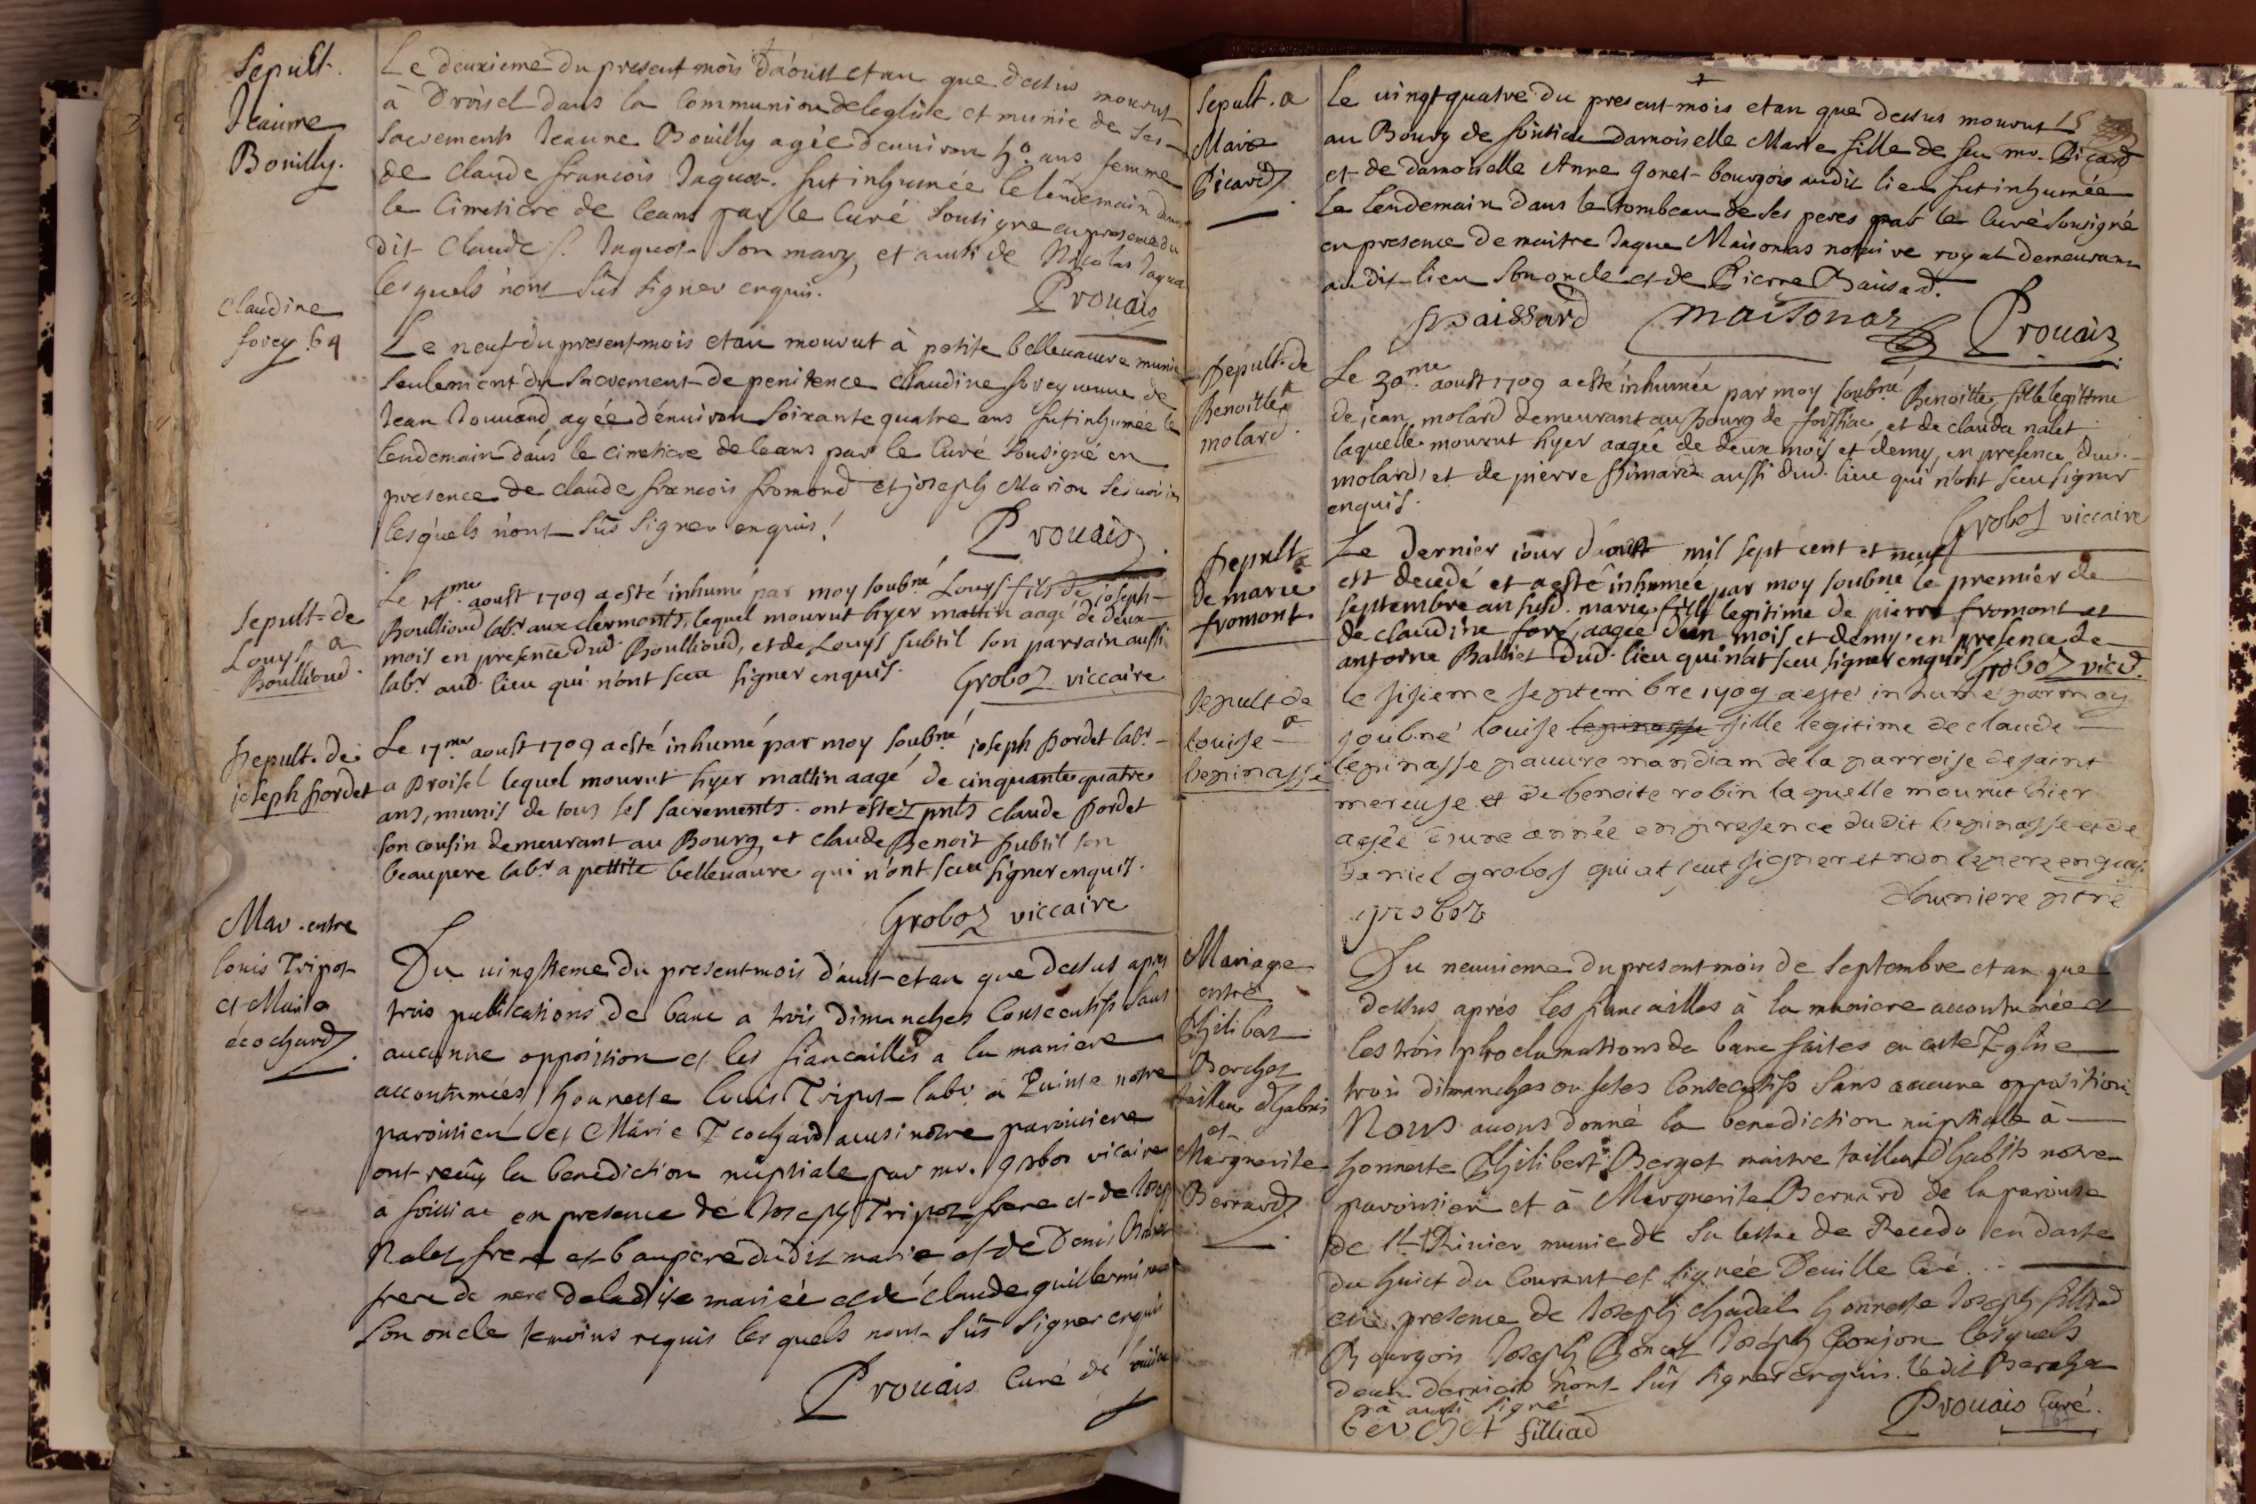 Sepult.
Jeanne
Bouilly.
Le deuxieme du present mois d'aoust et an que dessus mourut
à Droisel dans la Communion de leglise et munie de ses
sacrements Jeanne Bouilly agée d'environ 50 ans femme
de Claude francois Jaquot. fut inhumée le lendemain dans
le Cimetiere de ceans par le Curé soussigné en presence du
dit Claude f. Jaquot son mary, et aussi de Nicolas Jaquot
lesquels n'ont sus signer enquis.
Prouais
Claudine
forey 64
Le neuf du present mois et an mourut à petite bellevaure munie
seulement du sacrement de penitence Claudine forey veuve de
Jean Donnand, agée d'environ soixante quatre ans fut inhumée le
lendemain dans le cimetiere de ceans par le Curé sousigné en
presence de claude francois fromond et joseph Marion ses voisins
lesquels n'ont sus signer enquis!
Prouais
Sepult. de
Louys
Boullioud.
Le 14me. aoust 1709 a esté inhumé par moy soubné Louys fils de joseph
Boullioud labr aux clermonts, lequel mourut hyer mattin aagé de deux
mois en presence dud. Boullioud, et de Louys subtil son parrain aussi
labr aud. lieu qui n'ont sceu signer enquis.
Groboz viccaire
Sepult. de
joseph bordet
Le 17me aoust 1709 a esté inhumé par moy soubné joseph bordet labr
a Droisel lequel mourut hyer mattin aagé de cinquante quatre
ans, munis de tous ses sacrements. ont estez pnts claude bordet
son cousin demeurant au Bourg, et claude Benoit subtil son
beaupere labr a pettite bellevaure qui n'ont sceu signer enquis.
Groboz viccaire
Mar. entre
louis Tripoz
et Marie
écochard
Du vingtieme du present mois d'aust et an que dessus apres
trois publications de banc a trois dimanches Consecutifs sans
aucunne opposition et les fiancailles a la maniere
accoutumées honneste Louis Tripoz labr. a Quinte notre
paroissien et Marie Ecochard aussi notre paroissiene
ont reçu la benediction nuptiale par mr. groboz vicaire
a foissiac en presence de Joseph Tripoz frere et de
Nalet frere et baupere dudit marié et de Denis
frere de mere de ladite mariée et de claude guillermin
son oncle temoins requis lesquels n'ont sus signer enquis
Prouais Curé de
Sepult. a
Marie
Picard
Le vingt quatre du present mois et an que dessus mourut
au Bourg de foissiac damoiselle Marie fille de feu mr. Picard
et de damoiselle Anne Gonet bourgois audit lieu fut inhumée
Le lendemain dans le tombeau de ses peres par le Curé sousigné
en presence de maitre Jaque Maisonas notaire royal demeurant
audit lieu son oncle et de Pierre Baissard.
Baissard Maisonas Prouais
Sepult. de
Benoitte
molard.
Le 30me. aoust 1709 a esté inhumée par moy soubné Benoitte, fille legittime
de jean molard demeurant au bourg de foissiac, et de clauda nalet
laquelle mourut hyer aagée de deux mois et demy, en presence dud.
molard, et de pierre simard aussi dud. lieu qui n'ont sceu signer
enquis.
Groboz viccaire
Sepult.
de marie
fromont
Le dernier iour d'aoust mil sept cent et neuf
est decedé et a esté inhumée par moy soubné le premier de
septembre an susd. marie fille legitime de pierre fromont et
de claudine foré, aagée d'un mois et demy, en presence de
antoine Balliet dud. lieu qui n'at sceu signer enquis Groboz vicd.
Sepult de
louise
lepinasse
le sisieme septembre 1709 a esté inhumé par moy
soubné louise lepinasse fille legitime de claude
lepinasse pauvre mandiam de la parroise de saint
mereuse et de benoite robin laquelle mourut hier
agée d'une année en presence dudit lepinasse et de
daniel grobos qui at sceut signer et non le pere enquis
groboz
pitre
Mariage
entre
Philibert
Berchet
tailleur d'habis
et
Marguerite
Bernard
Du neuvieme du present mois de septembre et an que
dessus aprés les fiancailles à la maniere accoutumée et
les trois phroclamations de banc faites en cette Eglise
trois dimanches ou fetes Consecutifs sans aucune opposition
Nous avons donné la benediction nuptiale à
honneste Philibert Berget maitre tailleur d'habits notre
paroissien et à Marguerite Bernard de la paroisse
de St Rinier munie de sa lettre de Recedo en darte
du huict du Courant et signée Deuille Curé.
en presence de Joseph Chadal honneste Joseph filliad
Bourgois Joseph Poncet Joseph Gonjon lesquels
deux derniers n'ont sus signer enquis. ledit Berchet
a aussi signé
berchet filliad
Prouais Curé.